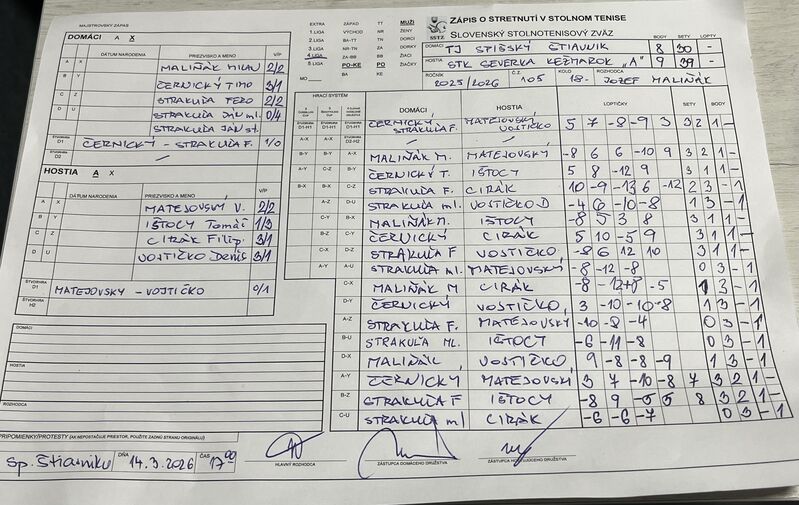 MAJSTROVSKÝ ZÁPAS
DOMÁCI A X
DÁTUM NARODENIA PRIEZVISKO A MENO V/P
A X MALIŇÁK MILAN 2/2
B Y ČERNICKÝ TIMO 3/1
C Z STRAKUĽA FERO 2/2
D U STRAKUĽA JÁN ml. 0/4
STRAKUĽA JÁN st.
ŠTVORHRA D1 ČERNICKÝ - STRAKUĽA F. 1/0
D2 —
HOSTIA A X
DÁTUM NARODENIA PRIEZVISKO A MENO V/P
A X MATEJOVSKÝ V. 2/2
B Y IŠTOCY Tomáš 1/3
C Z CIRÁK Filip 3/1
D U VOJTIČKO Denis 3/1
ŠTVORHRA D1 MATEJOVSKÝ - VOJTIČKO 0/1
ŠTVORHRA H2
DOMÁCI
HOSTIA
ROZHODCA
PRIPOMIENKY/PROTESTY (AK NEPOSTAČUJE PRIESTOR, POUŽITE ZADNÚ STRANU ORIGINÁLU)
Sp. Štiavniku DŇA 14.3.2026 ČAS 17:00
EXTRA ZÁPAD TT MUŽI
1.LIGA VÝCHOD NR ŽENY
2.LIGA BA-TT TN DORCI
3.LIGA NR-TN ZA DORKY
4.LIGA ZA-BB BB ŽIACI
5.LIGA PO-KE PO ŽIAČKY
MO BA KE
SSTZ
ZÁPIS O STRETNUTÍ V STOLNOM TENISE
SLOVENSKÝ STOLNOTENISOVÝ ZVÄZ
BODY SETY LOPTY
DOMÁCI TJ SPIŠSKÝ ŠTIAVNIK 8 30 -
HOSTIA STK SEVERKA KEŽMAROK "A" 9 39 -
ROČNÍK 2025/2026 Č.Z. 105 KOLO 18. ROZHODCA JOZEF MALIŇÁK
HRACÍ SYSTÉM
DOMÁCI HOSTIA LOPTIČKY SETY BODY
ŠTVORHRA D1-H1 ČERNICKÝ STRAKUĽA F. MATEJOVSKÝ VOJTIČKO 5 7 -8 -9 3 3 2 1 -
A-X
B-Y A-X MALIŇÁK M. MATEJOVSKÝ -8 6 6 -10 9 3 2 1 -
A-Y C-Z B-Y ČERNICKÝ T. IŠTOCY 5 8 -12 9 3 1 1 -
B-X B-X C-Z STRAKUĽA F. CIRÁK 10 -9 -13 6 -12 2 3 - 1
A-Z D-U STRAKUĽA ml VOJTIČKO D -4 6 -10 -8 1 3 - 1
C-Y MALIŇÁK M. IŠTOCY -8 5 3 8 3 1 1 -
B-Z C-Y ČERNICKÝ CIRÁK 5 10 -5 9 3 1 1 -
C-X D-Z STRAKUĽA F VOJTIČKO -8 6 12 10 3 1 1 -
A-Y A-U STRAKUĽA ml. MATEJOVSKÝ -8 -12 -8 0 3 - 1
C-X MALIŇÁK M CIRÁK -8 -12 +8 -5 1 3 - 1
D-Y ČERNICKÝ VOJTIČKO 3 -10 -10 -8 1 3 - 1
A-Z STRAKUĽA F. MATEJOVSKÝ -10 -8 -4 0 3 - 1
B-U STRAKUĽA ML. IŠTOCY -6 -11 -8 0 3 - 1
D-X MALIŇÁK VOJTIČKO 9 -8 -8 -9 1 3 - 1
A-Y ČERNICKÝ MATEJOVSKÝ 3 7 -10 -8 7 3 2 1 -
B-Z STRAKUĽA F IŠTOCY -8 9 -5 5 8 3 2 1 -
C-U STRAKUĽA ml CIRÁK -6 -6 -7 0 3 - 1
HLAVNÝ ROZHODCA
ZÁSTUPCA DOMÁCEHO DRUŽSTVA
ZÁSTUPCA HOSŤUJÚCEHO DRUŽSTVA